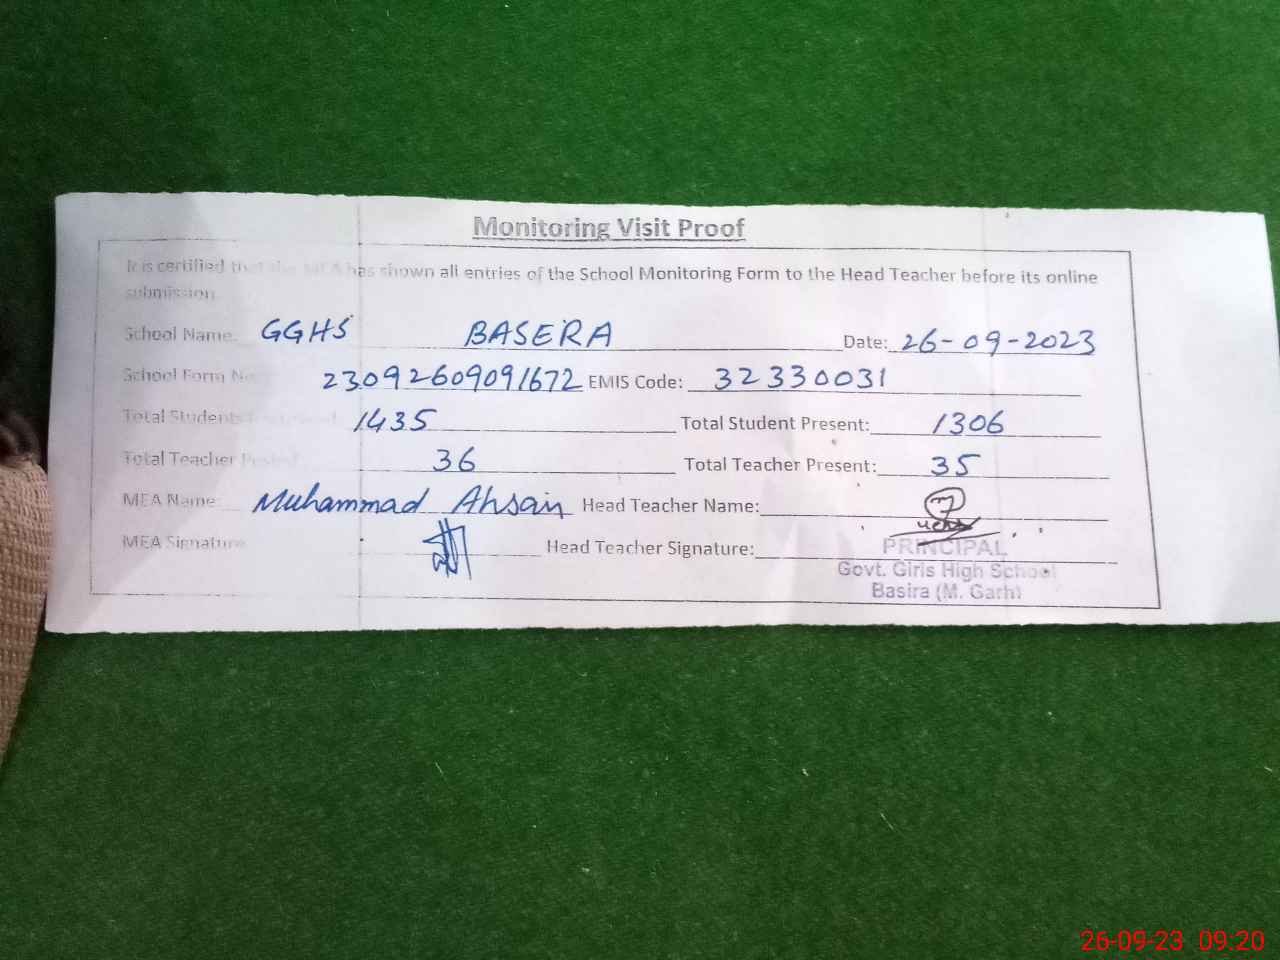 Monitoring Visit Proof
It is certified that the MEA has shown all entries of the School Monitoring Form to the Head Teacher before its online
submission
School Name: GGHS BASERA Date: 26-09-2023
School Form No 23092609091672 EMIS Code: 32330031
Total Students 1435 Total Student Present: 1306
Total Teacher Posted 36 Total Teacher Present: 35
MEA Name: Muhammad Ahsan Head Teacher Name:
MEA Signature Head Teacher Signature:
PRINCIPAL
Govt. Girls High School
Basira (M. Garh)
26-09-23 09:20